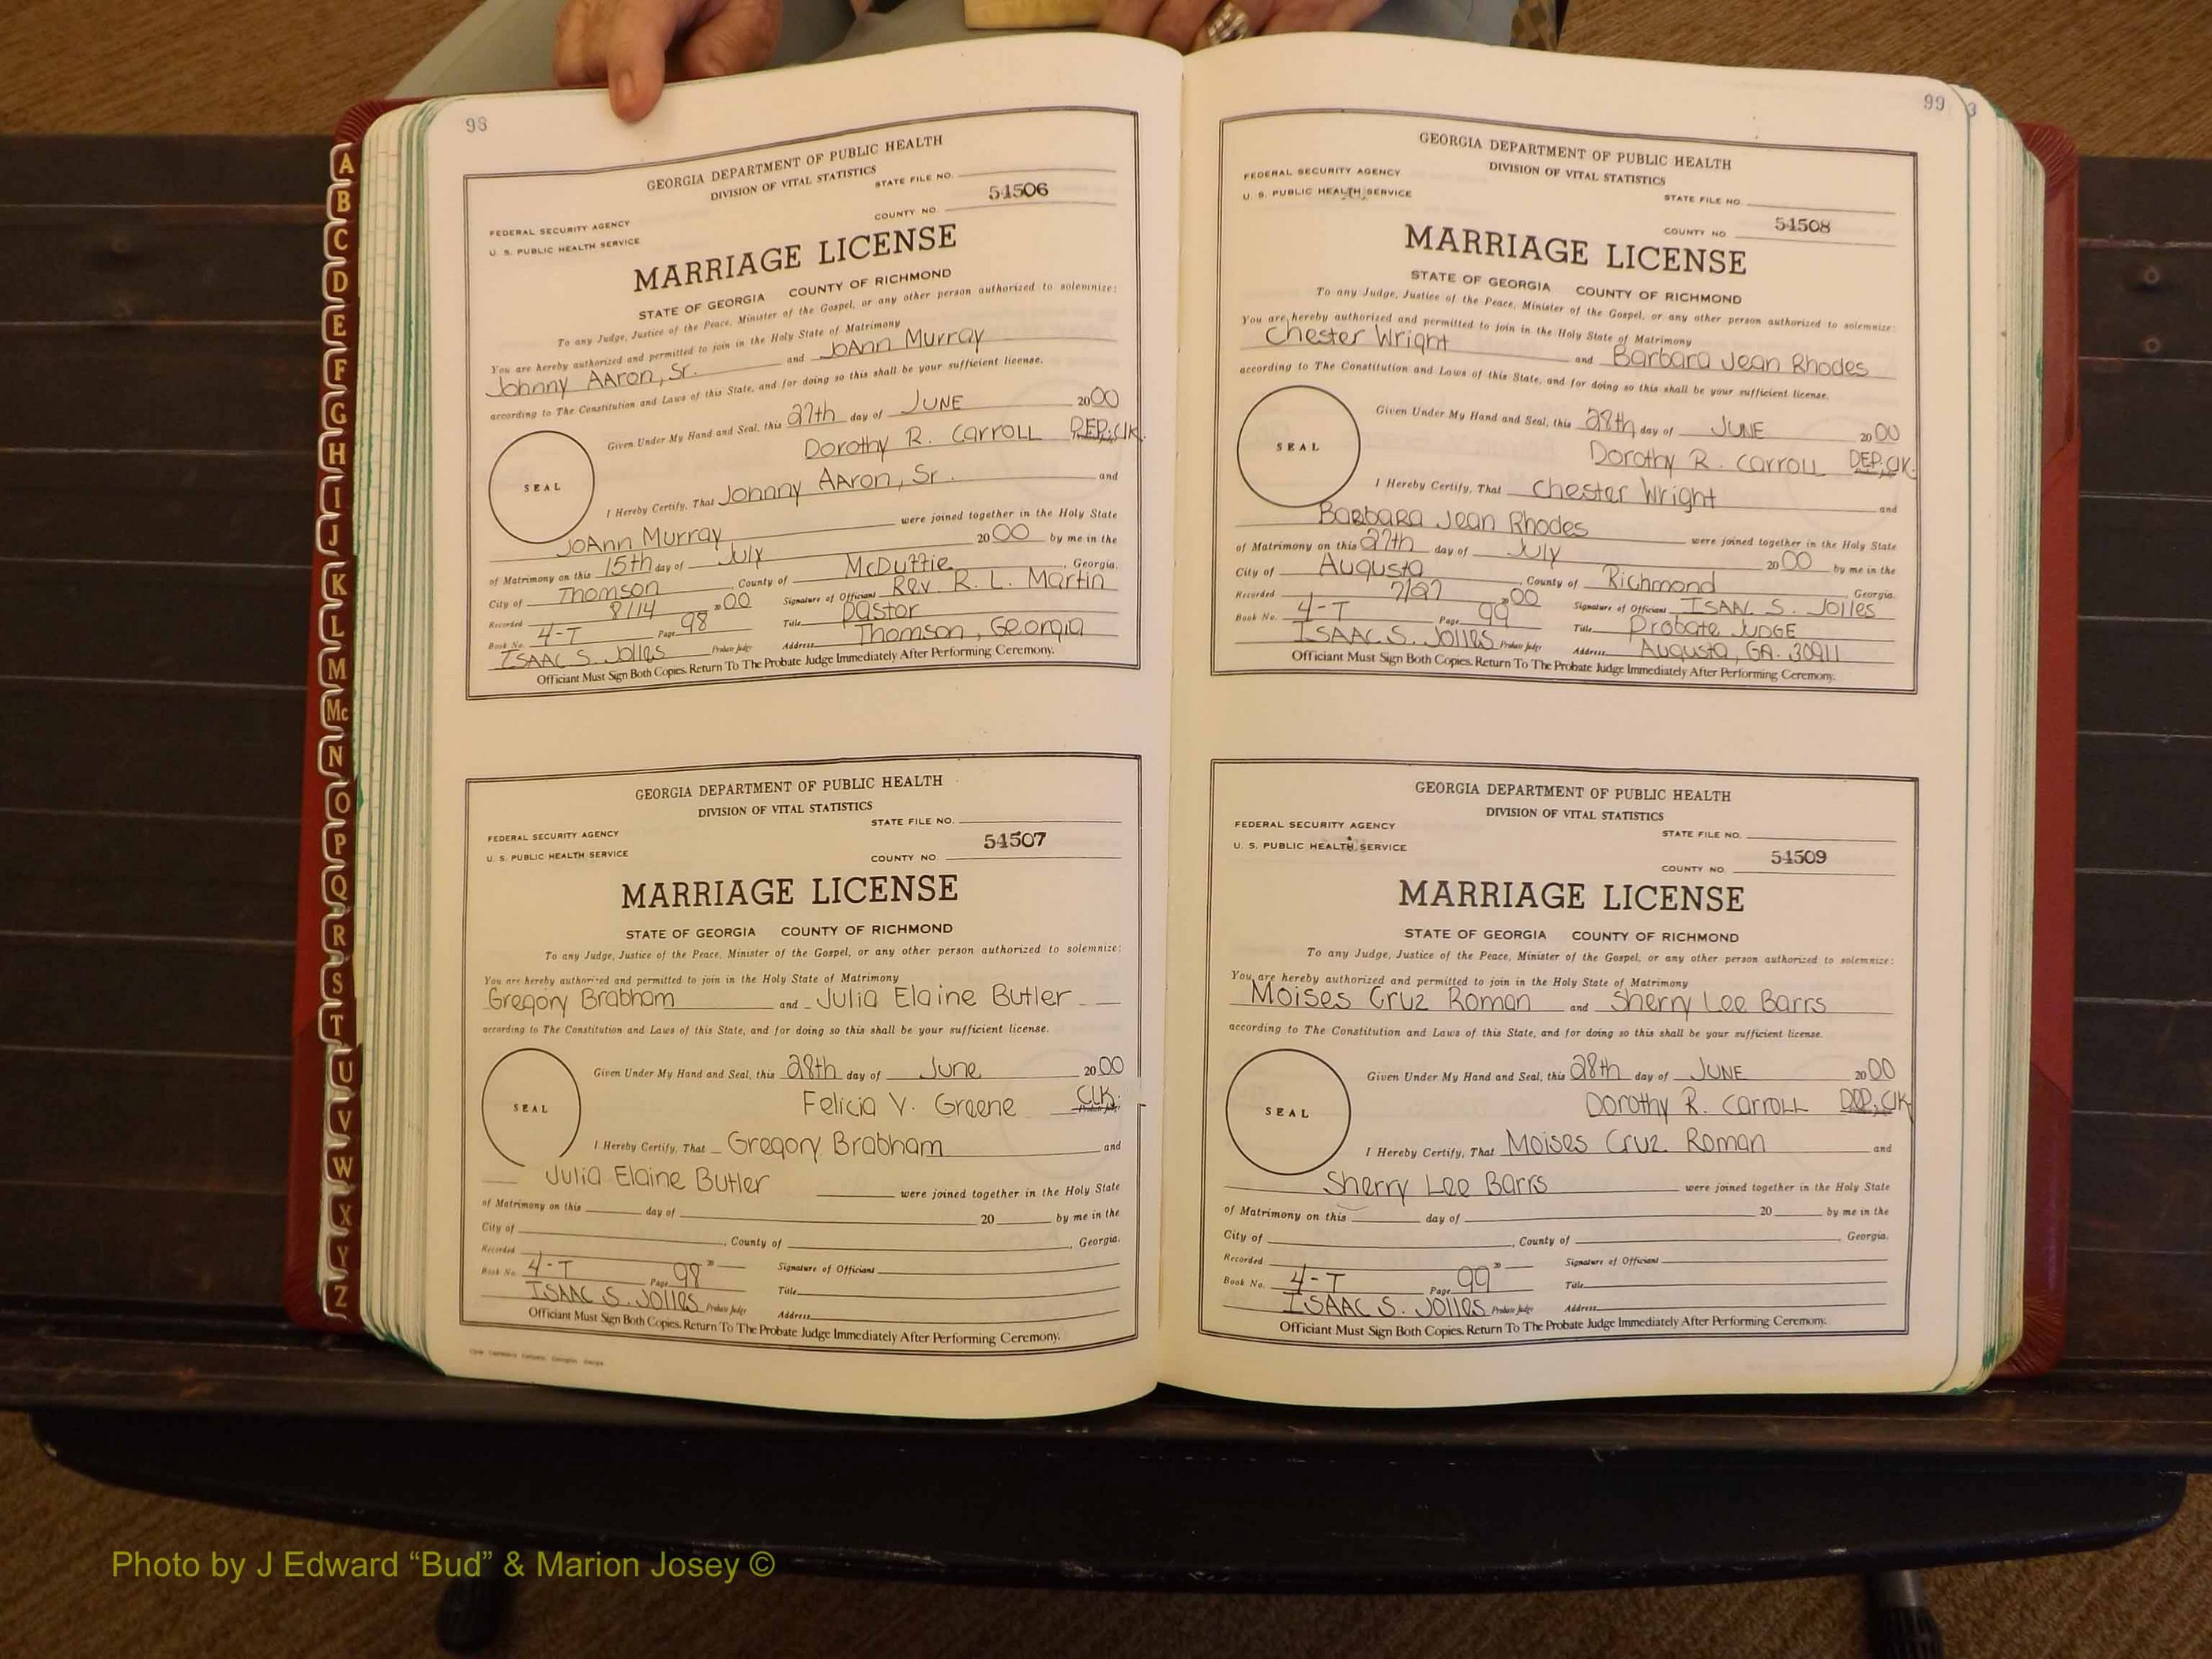 A
B
C
D
E
F
G
H
I
J
K
L
M
Mc
N
O
P
Q
R
S
T
U
V
W
X
Y
Z
98
GEORGIA DEPARTMENT OF PUBLIC HEALTH
DIVISION OF VITAL STATISTICS
STATE FILE NO.
FEDERAL SECURITY AGENCY
U. S. PUBLIC HEALTH SERVICE
COUNTY NO. 54506
MARRIAGE LICENSE
STATE OF GEORGIA COUNTY OF RICHMOND
To any Judge, Justice of the Peace, Minister of the Gospel, or any other person authorized to solemnize:
You are hereby authorized and permitted to join in the Holy State of Matrimony
Johnny AAron, Sr. and JoAnn Murray
according to The Constitution and Laws of this State, and for doing so this shall be your sufficient license.
Given Under My Hand and Seal, this 27th day of JUNE 2000
Dorothy R. CARROLL DEP. Clk.
SEAL
I Hereby Certify, That Johnny AAron, Sr. and
JoAnn Murray were joined together in the Holy State
of Matrimony on this 15th day of July 2000 by me in the
City of Thomson County of McDuffie, Georgia.
Recorded 8/14 2000 Signature of Officiant Rev. R. L. Martin
Book No. 4-T Page 98 Title Pastor
ISAAC S. Jolles Probate Judge Address Thomson, Georgia
Officiant Must Sign Both Copies. Return To The Probate Judge Immediately After Performing Ceremony.
GEORGIA DEPARTMENT OF PUBLIC HEALTH
DIVISION OF VITAL STATISTICS
STATE FILE NO.
FEDERAL SECURITY AGENCY
U. S. PUBLIC HEALTH SERVICE
COUNTY NO. 54507
MARRIAGE LICENSE
STATE OF GEORGIA COUNTY OF RICHMOND
To any Judge, Justice of the Peace, Minister of the Gospel, or any other person authorized to solemnize:
You are hereby authorized and permitted to join in the Holy State of Matrimony
Gregory Brabham and Julia Elaine Butler
according to The Constitution and Laws of this State, and for doing so this shall be your sufficient license.
Given Under My Hand and Seal, this 28th day of June 2000
Felicia V. Greene CLK.
SEAL
I Hereby Certify, That Gregory Brabham and
Julia Elaine Butler were joined together in the Holy State
of Matrimony on this day of 20 by me in the
City of , County of , Georgia.
Recorded 20 Signature of Officiant
Book No. 4-T Page 98 Title
ISAAC S. Jolles Probate Judge Address
Officiant Must Sign Both Copies. Return To The Probate Judge Immediately After Performing Ceremony.
99
3
GEORGIA DEPARTMENT OF PUBLIC HEALTH
DIVISION OF VITAL STATISTICS
FEDERAL SECURITY AGENCY
U. S. PUBLIC HEALTH SERVICE
STATE FILE NO.
COUNTY NO. 54508
MARRIAGE LICENSE
STATE OF GEORGIA COUNTY OF RICHMOND
To any Judge, Justice of the Peace, Minister of the Gospel, or any other person authorized to solemnize:
You are hereby authorized and permitted to join in the Holy State of Matrimony
Chester Wright and Barbara Jean Rhodes
according to The Constitution and Laws of this State, and for doing so this shall be your sufficient license.
Given Under My Hand and Seal, this 28th day of JUNE 2000
Dorothy R. CARROLL DEP. Clk.
SEAL
I Hereby Certify, That Chester Wright and
Barbara Jean Rhodes were joined together in the Holy State
of Matrimony on this 27th day of July 2000 by me in the
City of Augusta, County of Richmond Georgia.
Recorded 7/27 2000 Signature of Officiant ISAAC S. Jolles
Book No. 4-T Page 99 Title Probate JUDGE
ISAAC S. Jolles Probate Judge Address Augusta, GA. 30911
Officiant Must Sign Both Copies. Return To The Probate Judge Immediately After Performing Ceremony.
GEORGIA DEPARTMENT OF PUBLIC HEALTH
DIVISION OF VITAL STATISTICS
FEDERAL SECURITY AGENCY
U. S. PUBLIC HEALTH SERVICE
STATE FILE NO.
COUNTY NO. 54509
MARRIAGE LICENSE
STATE OF GEORGIA COUNTY OF RICHMOND
To any Judge, Justice of the Peace, Minister of the Gospel, or any other person authorized to solemnize:
You are hereby authorized and permitted to join in the Holy State of Matrimony
Moises Cruz Roman and Sherry Lee Barrs
according to The Constitution and Laws of this State, and for doing so this shall be your sufficient license.
Given Under My Hand and Seal, this 28th day of JUNE 2000
Dorothy R. CARROLL DEP. Clk
SEAL
I Hereby Certify, That Moises Cruz Roman and
Sherry Lee Barrs were joined together in the Holy State
of Matrimony on this day of 20 by me in the
City of , County of , Georgia.
Recorded 20 Signature of Officiant
Book No. 4-T Page 99 Title
ISAAC S. Jolles Probate Judge Address
Officiant Must Sign Both Copies. Return To The Probate Judge Immediately After Performing Ceremony.
Photo by J Edward “Bud” & Marion Josey ©